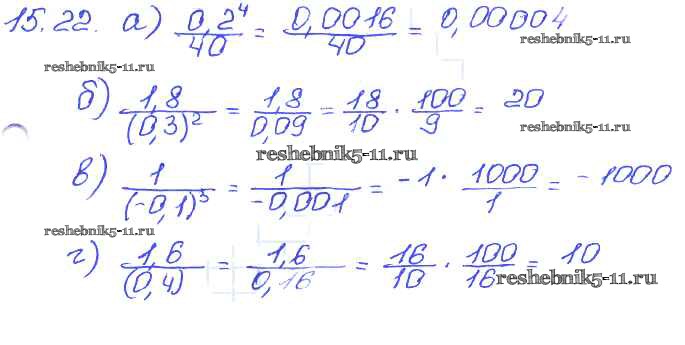 15.22. а) 0,2⁴/40 = 0,0016/40 = 0,00004
reshebnik5-11.ru
reshebnik5-11.ru
б) 1,8/(0,3)² = 1,8/0,09 = 18/10 · 100/9 = 20
reshebnik5-11.ru
reshebnik5-11.ru
в) 1/(-0,1)³ = 1/-0,001 = -1 · 1000/1 = -1000
reshebnik5-11.ru
г) 1,6/(0,4) = 1,6/0,16 = 16/10 · 100/16 = 10
reshebnik5-11.ru